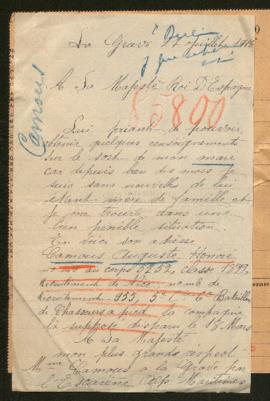 La Grave 12 juillet 1915
A Sa Majesté Roi D'Espagne
55800
Camous
Lui priant de pouvoir
obtenir quelques renseignements
sur le sort de mon mari
car depuis bien des mois je
suis sans nouvelle de lui
étant mère de famille et
je me trouve dans une
bien penible situation.
En voici son adresse
Camous Auguste Honoré
au corps 5252, classe 1899,
Recrutement de Nice, numero de
recrutement 955, 5e Bataillon
de Chasseurs à pied, la compagnie
la disparu le 15 Mars
A Sa Majesté
mon plus grands aspect
Mme Camous a la Grave par
L'Escarène Alpes Maritimes